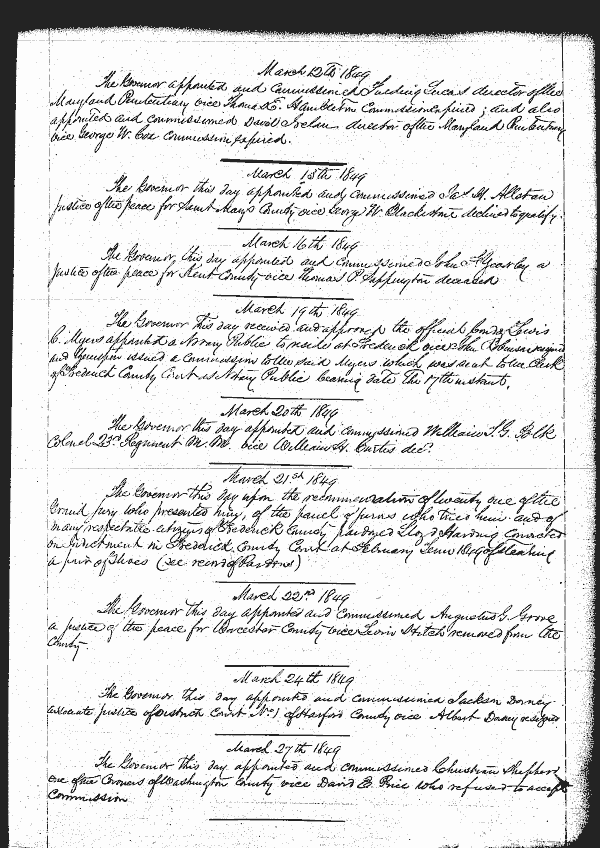 March 12th 1849
The Govenor appointed and commissioned Fielding Lucas director of the
Maryland Penitentiary vice Thomas E. Hambleton Commission expired; and also
appointed and commissioned David director of the Maryland Penitentiary
vice George W. Cox commission expired.
March 15th 1849
The Governor this day appointed and commissioned Jas H. Allstan
Justice of the peace for Saint Marys County vice George W. Blackistone declined to qualify.
March 16th 1849
The Governor, this day appointed and commissioned John a
Justice of the peace for Kent County vice Thomas P. Sappington deceased
March 19th 1849
The Governor this day received and approved the official bond of Lewis
C. Myers appointed a Notary Public to reside at Frederick vice resigned
and issued a Commission to the said Myers which was sent to the Clerk
of Frederick County Court as Notary Public bearing date the 17th instant.
March 20th 1849
The Governor this day appointed and commissioned William T. G. Polk
Colonel 23rd Regiment M. M. vice William H. Curtis decd.
March 21st 1849
The Governor this day upon the recommendation of twenty one of the
Grand jury who presented him, of the panel of jurors who tried him and of
many respectable citizens of Frederick County pardoned Lloyd Harding convicted
on Indictment in Frederick County Court at February Term 1849 of stealing
a pair of Shoes (see record of Pardons)
March 22nd 1849
The Governor this day appointed and commissioned Augustus G. Grove
a justice of the peace for Worcester County vice Lewis removed from the
County.
March 24th 1849
The Governor this day appointed and commissioned Jackson Dorney
associate justice of district Court No 1 of Harford County vice Albert Dorney resigned
March 27th 1849
The Governor this day appointed and commissioned Christian Shepherd
one of the Coroners of Washington County vice David B. Price who refused to accept
Commission